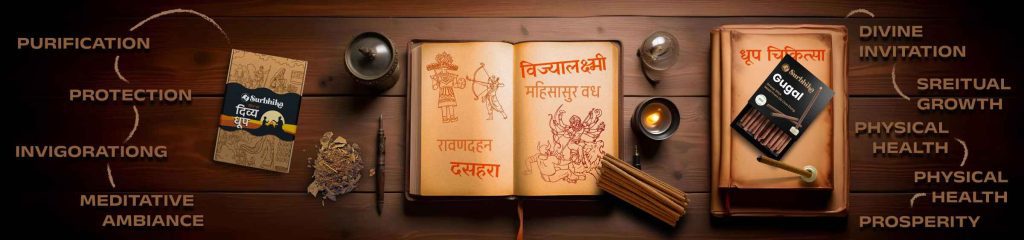 PURIFICATION
PROTECTION
INVIGORATIONG
MEDITATIVE
AMBIANCE
Surbhika
दिव्य
धूप
विज्यालक्ष्मी
महिसासुर वध
रावणदहन
दसहरा
धूप चिकित्सा
Surbhika
Gugal
DIVINE
INVITATION
SREITUAL
GROWTH
PHYSICAL
HEALTH
PHYSICAL
HEALTH
PROSPERITY